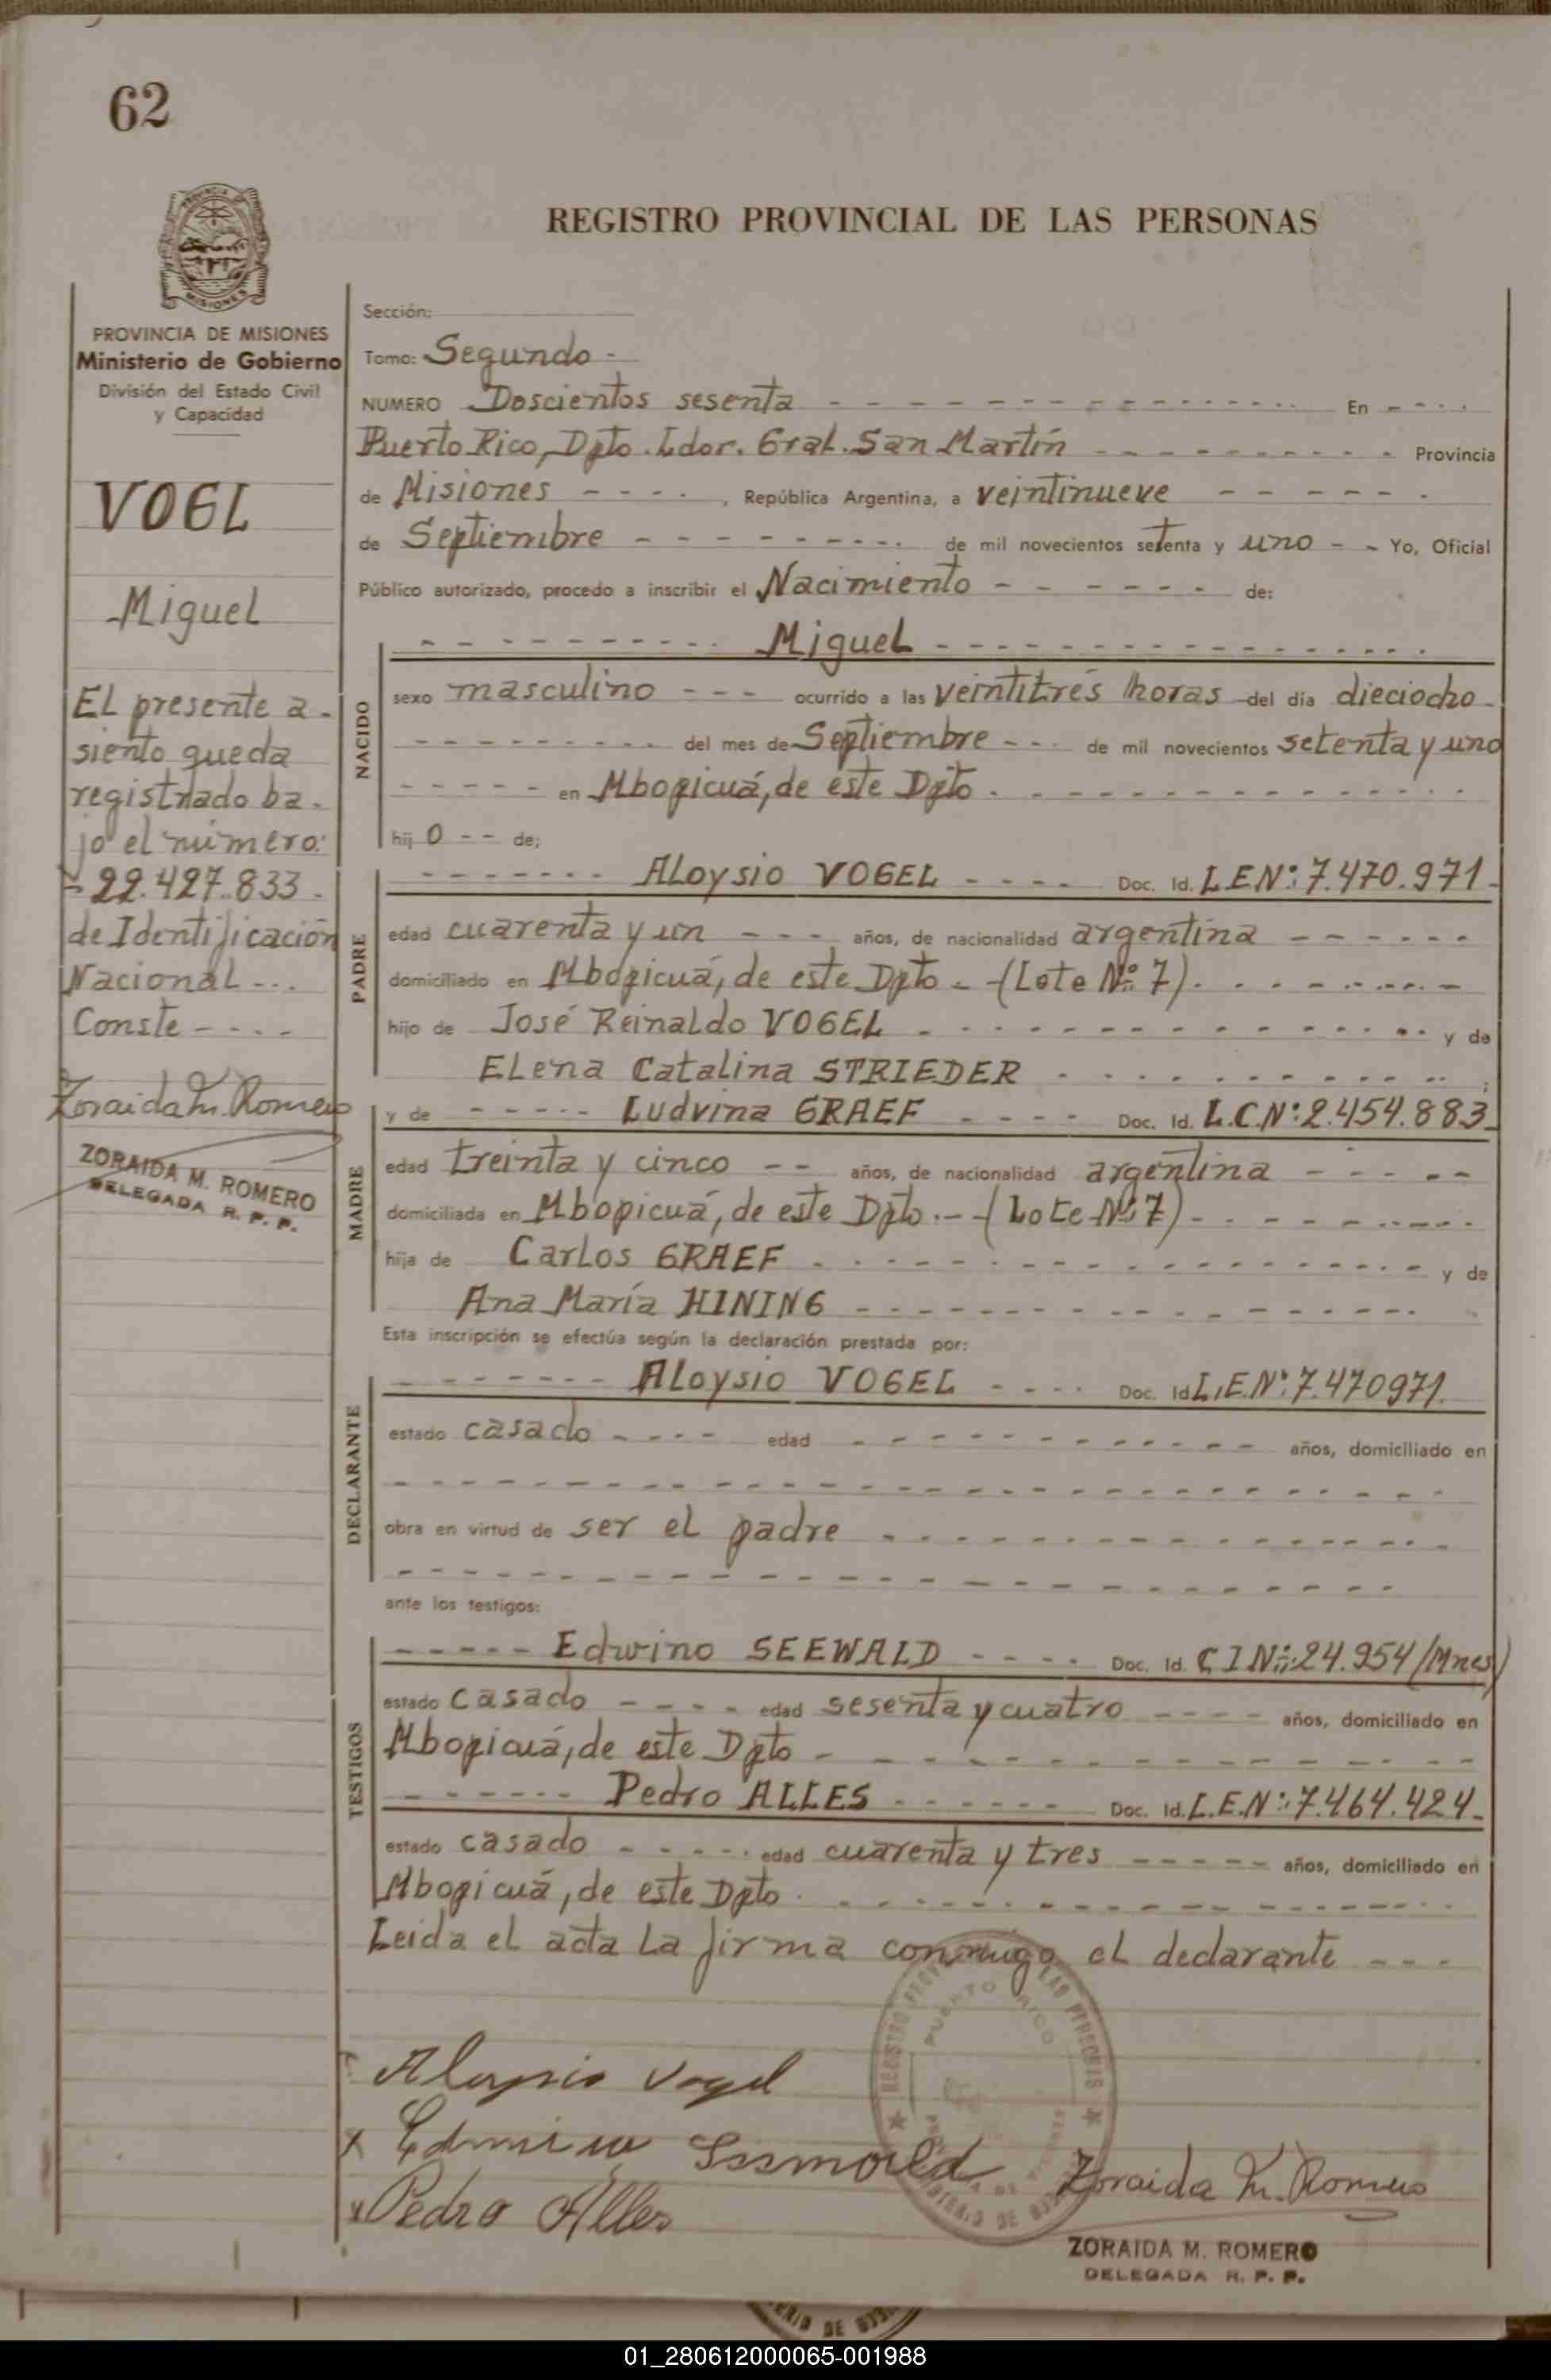 62
REGISTRO PROVINCIAL DE LAS PERSONAS
PROVINCIA DE MISIONES
Ministerio de Gobierno
División del Estado Civil
y Capacidad
VOGEL
Miguel
El presente a-
siento queda
registrado ba-
jo el número:
- 22.427.833 -
de Identificación
Nacional - - -
Conste - - - -
Zoraida M. Romero
ZORAIDA M. ROMERO
DELEGADA R. P. P.
Sección:
Tomo: Segundo -
NUMERO Doscientos sesenta - - - En - - - -
Puerto Rico, Dpto. Ldor. Gral. San Martín - - - Provincia
de Misiones - - - -, República Argentina, a veintinueve - - -
de Septiembre - - - de mil novecientos setenta y uno - - Yo, Oficial
Público autorizado, procedo a inscribir el Nacimiento - - - de:
NACIDO
- - - Miguel - - -
sexo masculino - - - ocurrido a las veintitrés horas del día dieciocho -
- - - del mes de Septiembre - - - de mil novecientos setenta y uno
- - - en Mbopicuá, de este Dpto. - - -
hij o - - de;
PADRE
- - - Aloysio VOGEL - - - Doc. Id. L.E.Nº: 7.470.971 -
edad cuarenta y un - - - años, de nacionalidad argentina - - -
domiciliado en Mbopicuá, de este Dpto. - (Lote Nº 7). - - -
hijo de José Reinaldo VOGEL - - - y de
Elena Catalina STRIEDER - - - ;
MADRE
y de - - - Ludvina GRAEF - - - Doc. Id. L.C.Nº: 2.454.883 -
edad treinta y cinco - - años, de nacionalidad argentina - - -
domiciliada en Mbopicuá, de este Dpto. - - (Lote Nº 7) - - -
hija de Carlos GRAEF - - - y de
Ana María HINING - - -
Esta inscripción se efectúa según la declaración prestada por:
DECLARANTE
- - - Aloysio VOGEL - - - Doc. Id. L.E.Nº: 7.470971.
estado casado - - - - edad - - - años, domiciliado en
- - -
obra en virtud de ser el padre - - -
- - -
ante los testigos:
TESTIGOS
- - - Edwino SEEWALD - - - Doc. Id. C I Nº: 24.954/Mnes)
estado casado - - - - edad sesenta y cuatro - - - - años, domiciliado en
Mbopicuá, de este Dpto - - -
- - - Pedro ALLES - - - Doc. Id. L.E.Nº: 7.464.424 -
estado casado - - - edad cuarenta y tres - - - años, domiciliado en
Mbopicuá, de este Dpto. - - -
Leida el acta la firma conmigo el declarante - - -
REGISTRO PROVINCIAL DE LAS PERSONAS
PUERTO RICO
Aloysio Vogel
x
x Pedro Alles
Zoraida M. Romero
ZORAIDA M. ROMERO
DELEGADA R. P. P.
01_280612000065-001988